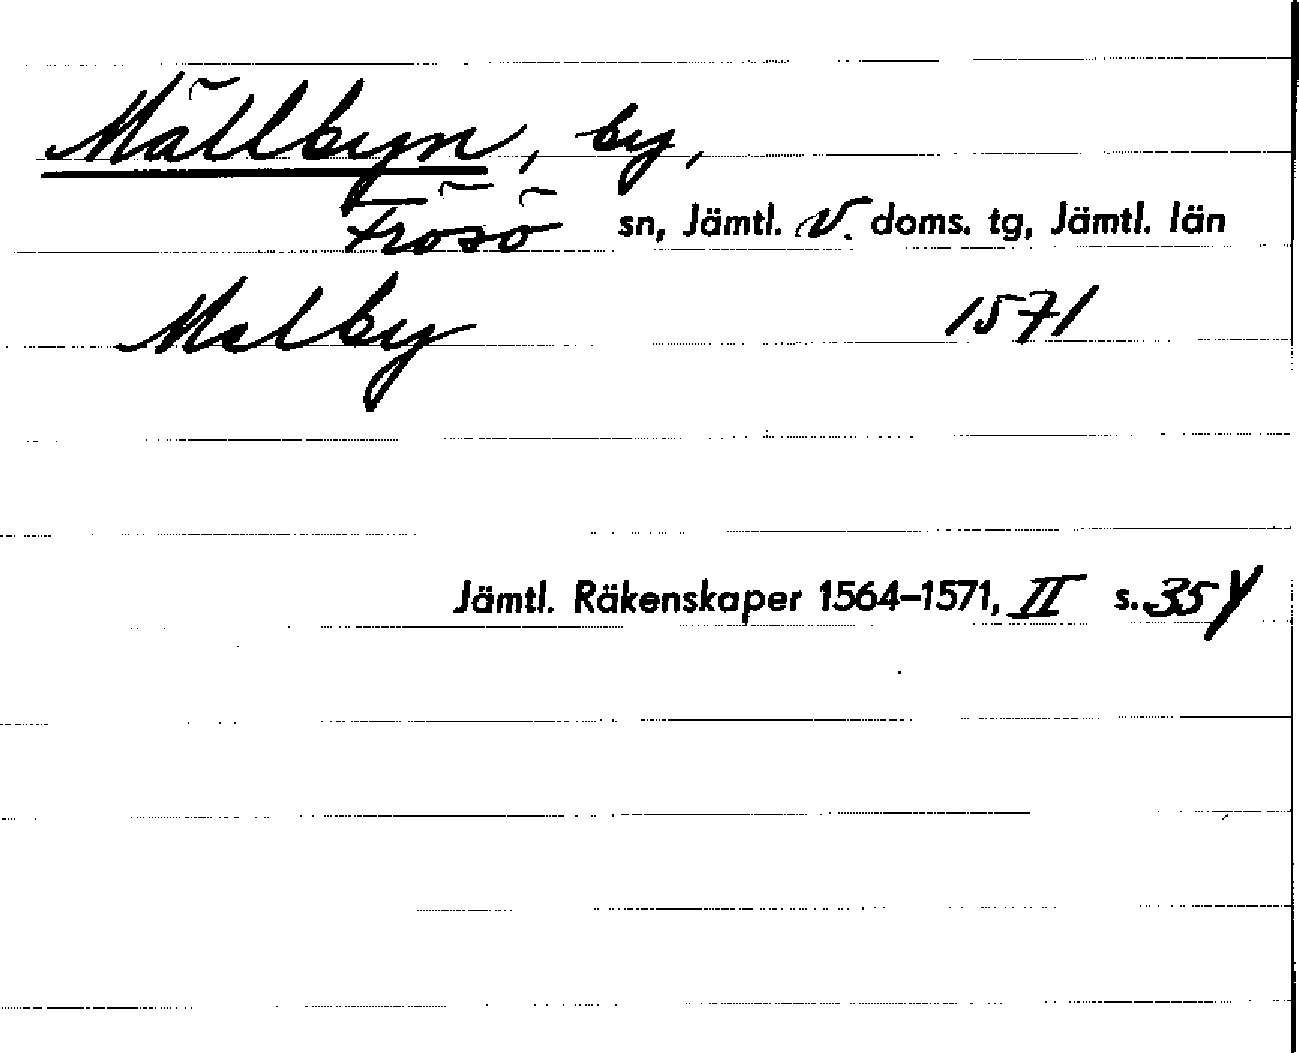 Mällbyn, by,
Frösö sn, Jämtl. V. doms. tg, Jämtl. län
Malby 1571
Jämtl. Räkenskaper 1564–1571, II s. 35